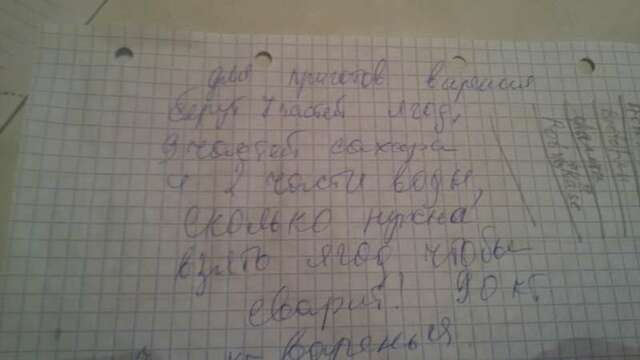 для приготов варения
берут 7 частей ягод,
9 частей сахара
и 2 части воды,
сколько нужна
взять ягод чтобы
сварит! 90 кг
варенья